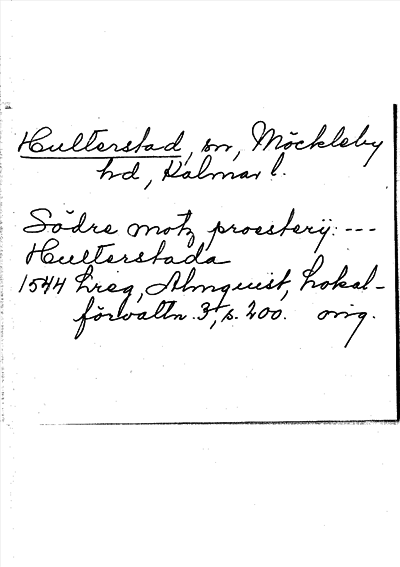 Hulterstad, sn, Möckleby
hd, Kalmar l.
Södre motz proesterij: ---
Hulterstada
1544 Lreg, Almquist, Lokal-
förvaltn. 3, s. 200. orig.